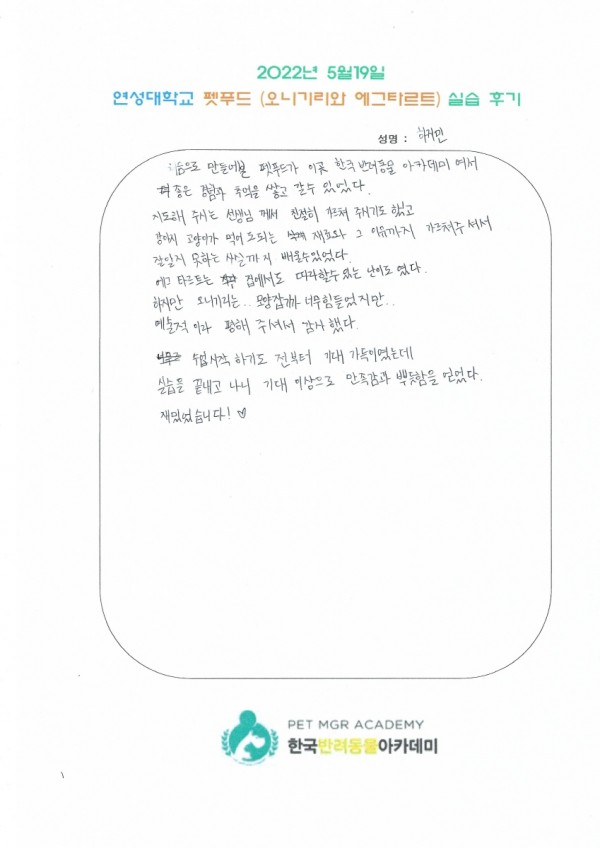 2022년 5월19일
연성대학교 펫푸드 (오니기리와 에그타르트) 실습 후기
성명 : 하거민
처음으로 만들어본 펫푸드가 이곳 한국 반려동물 아카데미 여서
더 좋은 경험과 추억을 쌓고 갈수 있었다.
지도해 주시는 선생님 께서 친절히 가르쳐 주시기도 했고
강아지 고양이가 먹어 도되는 재료와 그 이유까지 가르쳐주셔서
잘알지 못하는 사실까지 배울수있었다.
에그타르트는 집에서도 따라할수있는 난이도 였다.
하지만 오니기리는.. 모양잡기가 너무힘들었지만..
예술적 이라 평해 주셔서 감사했다.
수업시작 하기도 전부터 기대 가득이였는데
실습을 끝내고 나니 기대 이상으로 만족감과 뿌듯함을 얻었다.
재밌었습니다! ♡
PET MGR ACADEMY
한국반려동물아카데미